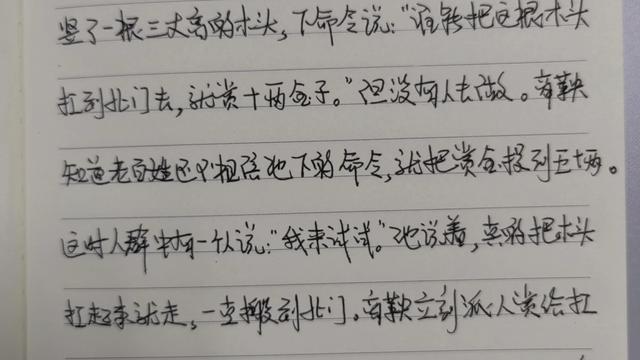 竖了一根三丈高的木头，下命令说：“谁能把这根木头
扛到北门去，就赏十两金子。”但没有人去做。商鞅
知道老百姓还不相信他下的命令，就把赏金提到五十两。
这时人群中有一个人说：“我来试试。”他说着，真的把木头
扛起来就走，一直搬到北门。商鞅立刻派人赏给扛